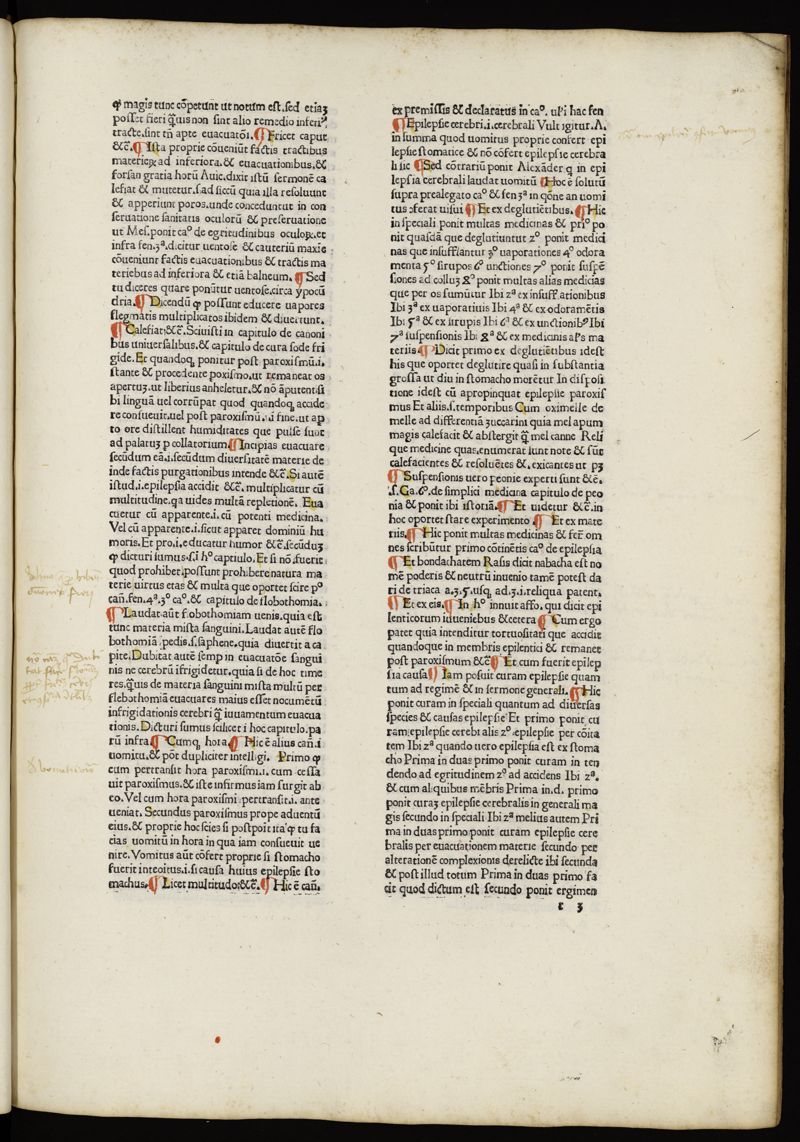 ꝙ magis tunc cōpetunt ut notum est. sed etiaꝫ
posset fieri q̄uis non sint alio remedio inferiꝰ.
tracte. sint tn̄ apte euacuatōi. ¶ Fricet caput
&c̄. ¶ Ista proprie cōueniūt factis tractibus
materieꝝ ad inferiora. & euacuationibus. &
forsan gratia horū Auic. dixit istū sermonē ca
lefiat & mutetur. s. ad siccū quia illa resoluunt
& apperiunt poros. unde conceduntur in con
seruatione sanitatis oculorū & preseruatione
ut Mes. ponit caº de egritudinibus oculoꝝ. et
infra fen. 3ª. dicitur uentose & cauteriū maxie
cōueniunt factis euacuationibus & tractis ma
teriebus ad inferiora & etiā balneum. ¶ Sed
tu diceres quare ponūtur uentose. circa ypocū
dria. ¶ Dicendū ꝙ possunt educere uapores
flegmatis multiplicatos ibidem & diuertunt.
¶ Calefiat: &c̄. Sciuisti in capitulo de canoni
bus uniuersalibus. & capitulo de cura sode fri
gide. Et quandoqꝫ ponitur post paroxismū. i.
stante & procedente poxismo. ut remaneat os
apertuꝫ. ut liberius anheletur. & nō aputentisi
bi linguā uel corrūpat quod quandoqꝫ accide
re consueuit. uel post paroxismū. i. i fine. ut ap
to ore distillent humiditates que pulse sunt
ad palatuꝫ p collatorium ¶ Incipias euacuare
secūdum eā. i. secūdum diuersitatē materie de
inde factis purgationibus intende &c̄. Si autē
istud. i. epilepsia accidit &c̄. multiplicatur cū
multitudine. qa uides multā repletionē. Eua
cuetur cū apparente. i. cū potenti medicina.
Vel cū apparente. i. sicut apparet dominiū hu
moris. Et pro. i. educatur humor &c̄. secūduꝫ
ꝙ dicturi sumus. s. i hº captiulo. Et si nō fuerit
quod prohibet. possunt prohibere natura ma
terie uirtus etas & multa que oportet scire pº
can̄. fen. 4ª. 3º caº. & capitulo de flobothomia.
¶ Laudat aūt flobothomiam uenis. quia est
tunc materia mista sanguini. Laudat autē flo
bothomiā pedis. s. saphene. quia diuertit a ca
pite. Dubitat autē semp in euacuatōe sangui
nis ne cerebrū ifrigidetur. quia si de hoc time
res. q̄uis de materia sanguini mista multū per
flebothomiā euacuares maius esset nocumētū
infrigidationis cerebri q̄ iuuamentum euacua
tionis. Dicturi sumus scilicet i hoc capitulo. pa
rū infra ¶ Cumqꝫ hora ¶ Hic ē alius can̄. i
uomitu. & pōt dupliciter intelligi. Primo ꝙ
cum pertransit hora paroxismi. i. cum cessa
uit paroxismus. & iste infirmus iam surgit ab
eo. Vel cum hora paroxismi pertransit. i. ante
ueniat. Secundus paroxismus prope aduentū
eius. & proprie hoc scies si postpoit ita ꝙ tu fa
cias uomitū in hora in qua iam consueuit ue
nire. Vomitus aūt cōfert proprie si stomacho
fuerit inteoitus. i. si causa huius epilepsie sto
machus. ¶ Licet multitudo: &c̄. ¶ Hic ē can̄.
ex premissis & declaratus in caº. ul'i hac fen
¶ Epilepsie cerebri. i. cerebrali Vult igitur. A.
in summa quod uomitus proprie confert epi
lepsie stomatice & nō cōfert epilepsie cerebra
li sic ¶ Sed cōtrariū ponit Alexāder q in epi
lepsia cerebrali laudat uomitū ¶ Hoc ē solutū
supra prealegato caº & fen 3ª in qōne an uomi
tus ferat uisui ¶ Et ex deglutiētibus. ¶ Hic
in speciali ponit multas medicinas & priº po
nit quasdā que deglutiuntur 2º ponit medici
nas que insufflantur 3º uaporationes 4º odora
menta 5º sirupos 6º unctiones 7º ponit suspē
siones ad colluꝫ 8º ponit multas alias medicias
que per os sumūtur Ibi 2ª ex insuff ationibus
Ibi 3ª ex uaporatiuis Ibi 4ª & ex odoramētis
Ibi 5ª & ex sirupis Ibi 6ª & ex unctionibꝰ Ibi
7ª suspensionis Ibi 8ª & ex medicinis al's ma
teriis ¶ Dicit primo ex deglutiētibus idest
his que oportet deglutire quasi in substantia
grossa ut diu in stomacho morētur In disposi
tione idest cū apropinquat epilepsie paroxis
mus Et aliis. s. temporibus Cum oximelle de
melle ad differentiā zuccarini quia mel apum
magis calefacit & abstergit q̄ mel canne Reli
que medicine quas enumerat sunt note & sūt
calefacientes & resoluētes &. exicantes ut pꝫ
¶ Suspensionis uero peonie experti sunt &c̄.
.s. Ga. 6º. de simplici medicina capitulo de peo
nia & ponit ibi istoriā. ¶ Et uidetur &c̄. in
hoc oportet stare experimento ¶ Et ex mate
riis. ¶ Hic ponit multas medicinas & fer̄ om
nes scribūtur primo cōtinētis caº de epilepsia
¶ Et bondachatem Rasis dicit nabacha est no
mē poderis & neutrū inuenio tamē potest da
ri de triaca a. 3. 5. usqꝫ ad. 3. i. reliqua patent.
¶ Et ex eis. ¶ In hº innuit affo. qui dicit epi
lenticorum idueniebus &cetera ¶ Cum ergo
patet quia intenditur tortuositati que accidit
quandoque in membris epilentici & remanet
post paroxismum &c̄ ¶ Et cum fuerit epilep
sia causa ¶ Iam posuit curam epilepsie quam
tum ad regimē & in sermone generali. ¶ Hic
ponit curam in speciali quantum ad diuersas
species & causas epilepsie Et primo ponit cu
ram epilepsie cerebi alis 2º epilepsie per cōita
tem Ibi 2ª quando uero epilepsia est ex stoma
cho Prima in duas primo ponit curam in ten
dendo ad egritudinem 2º ad accidens Ibi 2ª.
& cum aliquibus mēbris Prima in. d. primo
ponit curaꝫ epilepsie cerebralis in generali ma
gis secundo in speciali Ibi 2ª melius autem Pri
ma in duas primo ponit curam epilepsie cere
bralis per euacuationem materie secundo per
alterationē complexionis derelicte ibi secunda
& post illud totum Prima in duas primo fa
cit quod dictum est secundo ponit ergimen
c 3